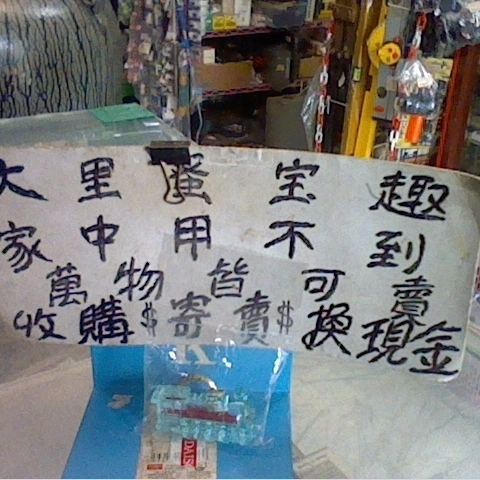 大里蚤宝趣
家中用不到
萬物皆可賣
收購$寄賣$換現金
DAISO